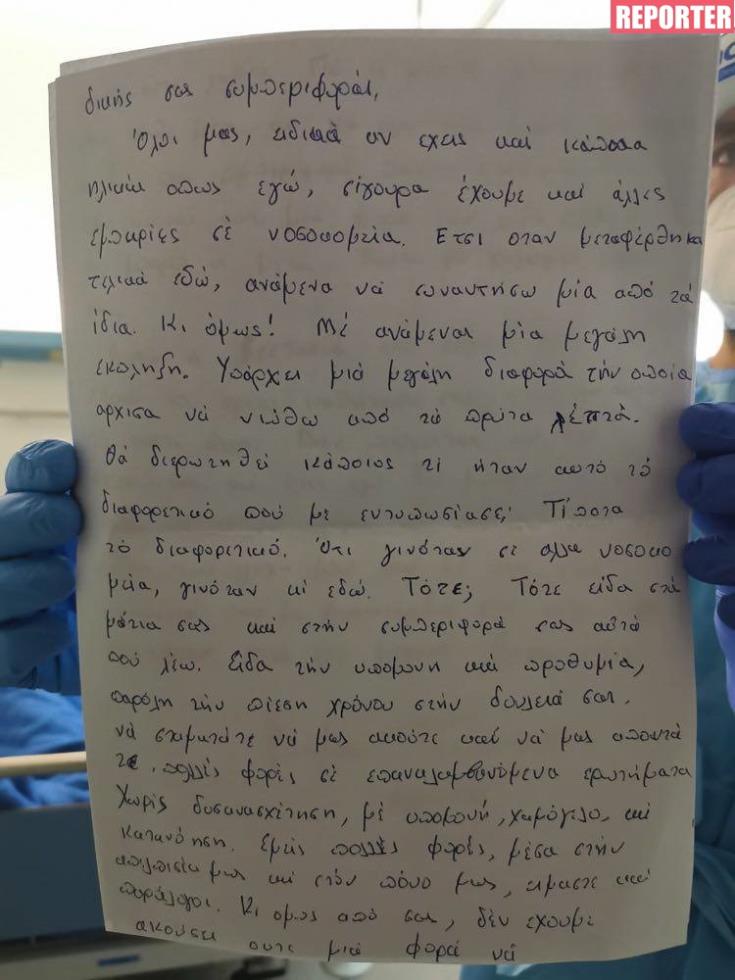 REPORTER
δικής σας συμπεριφοράς,
Όλοι μας, ειδικά αν εχεις και κάποια
ηλικία οπως εγώ, σίγουρα έχουμε καί άλλες
εμπειρίες σέ νοσοκομεία. Ετσι οταν μεταφέρθηκα
τελικά εδώ, ανάμενα νά συναντήσω μία από τά
ίδια. Κι όμως! Μέ ανάμεναι μία μεγάλη
έκπληξη. Υπάρχει μιά μεγάλη διαφορά την οποία
αρχισα νά νιώθω από τα πρώτα λεπτά.
Θά διερωτηθεί κάποιος τί ήταν αυτό τό
διαφορετικό πού με εντυπωσίασε; Τίποτα
τό διαφορετικό. Ότι γινόταν σέ αλλα νοσοκο
μεία, γινόταν κι εδώ. Τότε; Τότε είδα στά
μάτια σας καί στήν συμπεριφορά σας αυτό
πού λέω. Είδα τήν υπομονη και προθυμία,
παρόλη τήν πίεση χρόνου στήν δουλειά σας.
νά σταματάτε νά μας ακούτε καί νά μας απαντά
τε. πολλές φορές σέ επαναλαμβανόμενα ερωτήματα
Χωρίς δυσανασχέτηση, μέ υπομονή, χαμόγελο, και
κατανόηση. Εμείς πολλές φορές, μέσα στήν
απελπισία μας και στόν πόνο μας, ειμαστε και
παράλογοι. Κι ομως από σας, δέν εχουμε
ακουσει ουτε μιά φορά νά